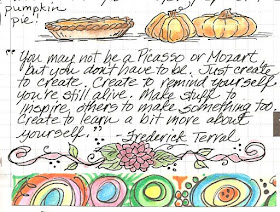 pumpkin
pie!
"You may not be a Picasso or Mozart,
but you don't have to be. Just create
to create. Create to remind yourself
you're still alive. Make stuff to
inspire others to make something too.
Create to learn a bit more about
yourself." -Frederick Terral